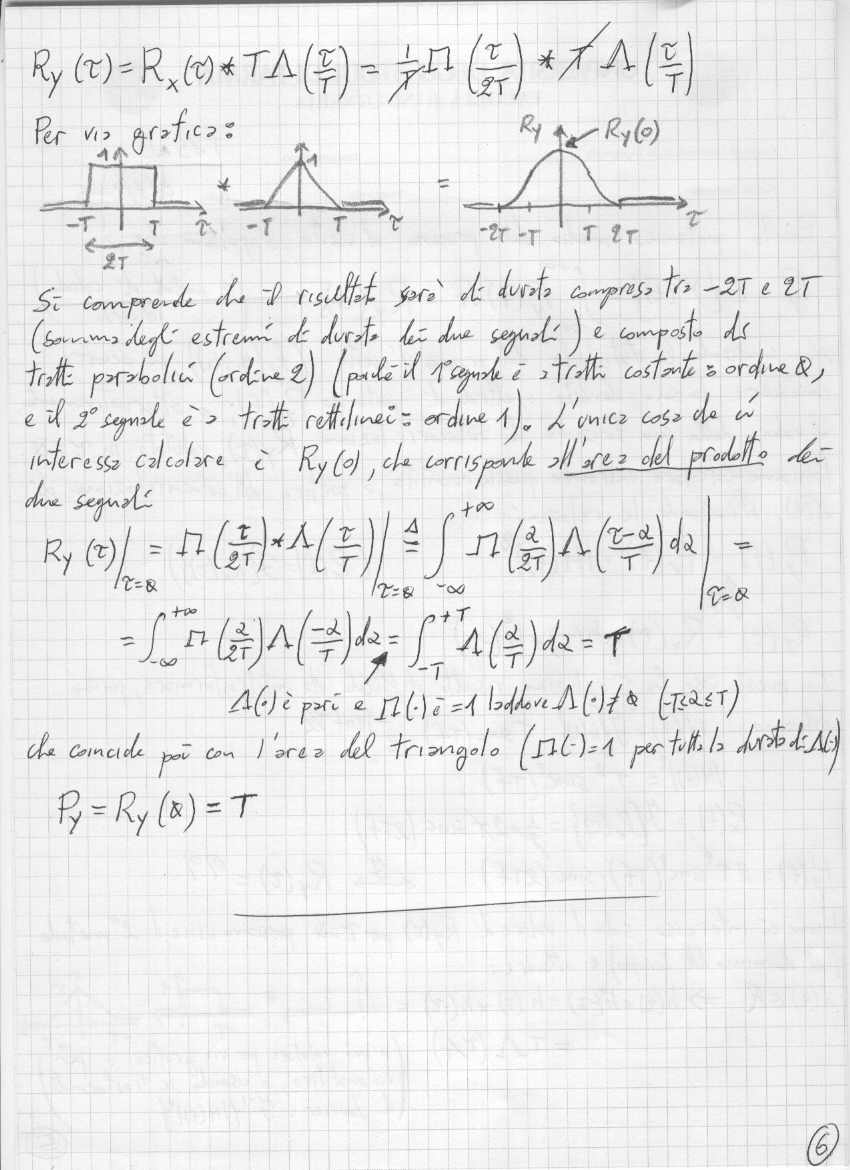 Ry(τ) = Rx(τ) * TΛ(τ/T) = 1/T Π(τ/2T) * T Λ(τ/T)
Per via grafica:
1 -T T τ 2T * 1 -T T τ = Ry Ry(0) -2T -T T 2T τ
Si comprende che il risultato sarà di durata compresa tra -2T e 2T
(somma degli estremi di durata dei due segnali) e composto da
tratti parabolici (ordine 2) (poiché il 1° segnale è a tratti costante = ordine 0,
e il 2° segnale è a tratti rettilinei = ordine 1). L'unica cosa che ci
interessa calcolare è Ry(0), che corrisponde all'area del prodotto dei
due segnali
Ry(τ)|τ=0 = Π(τ/2T) * Λ(τ/T)|τ=0 ≜ ∫-∞+∞ Π(α/2T) Λ((τ-α)/T) dα |τ=0 =
= ∫-∞+∞ Π(α/2T) Λ(-α/T) dα = ∫-T+T Λ(α/T) dα = T
Λ(·) è pari e Π(·) è =1 laddove Λ(·)≠0 (-T≤α≤T)
che coincide poi con l'area del triangolo (Π(·)=1 per tutta la durata di Λ(·))
Py = Ry(0) = T
6